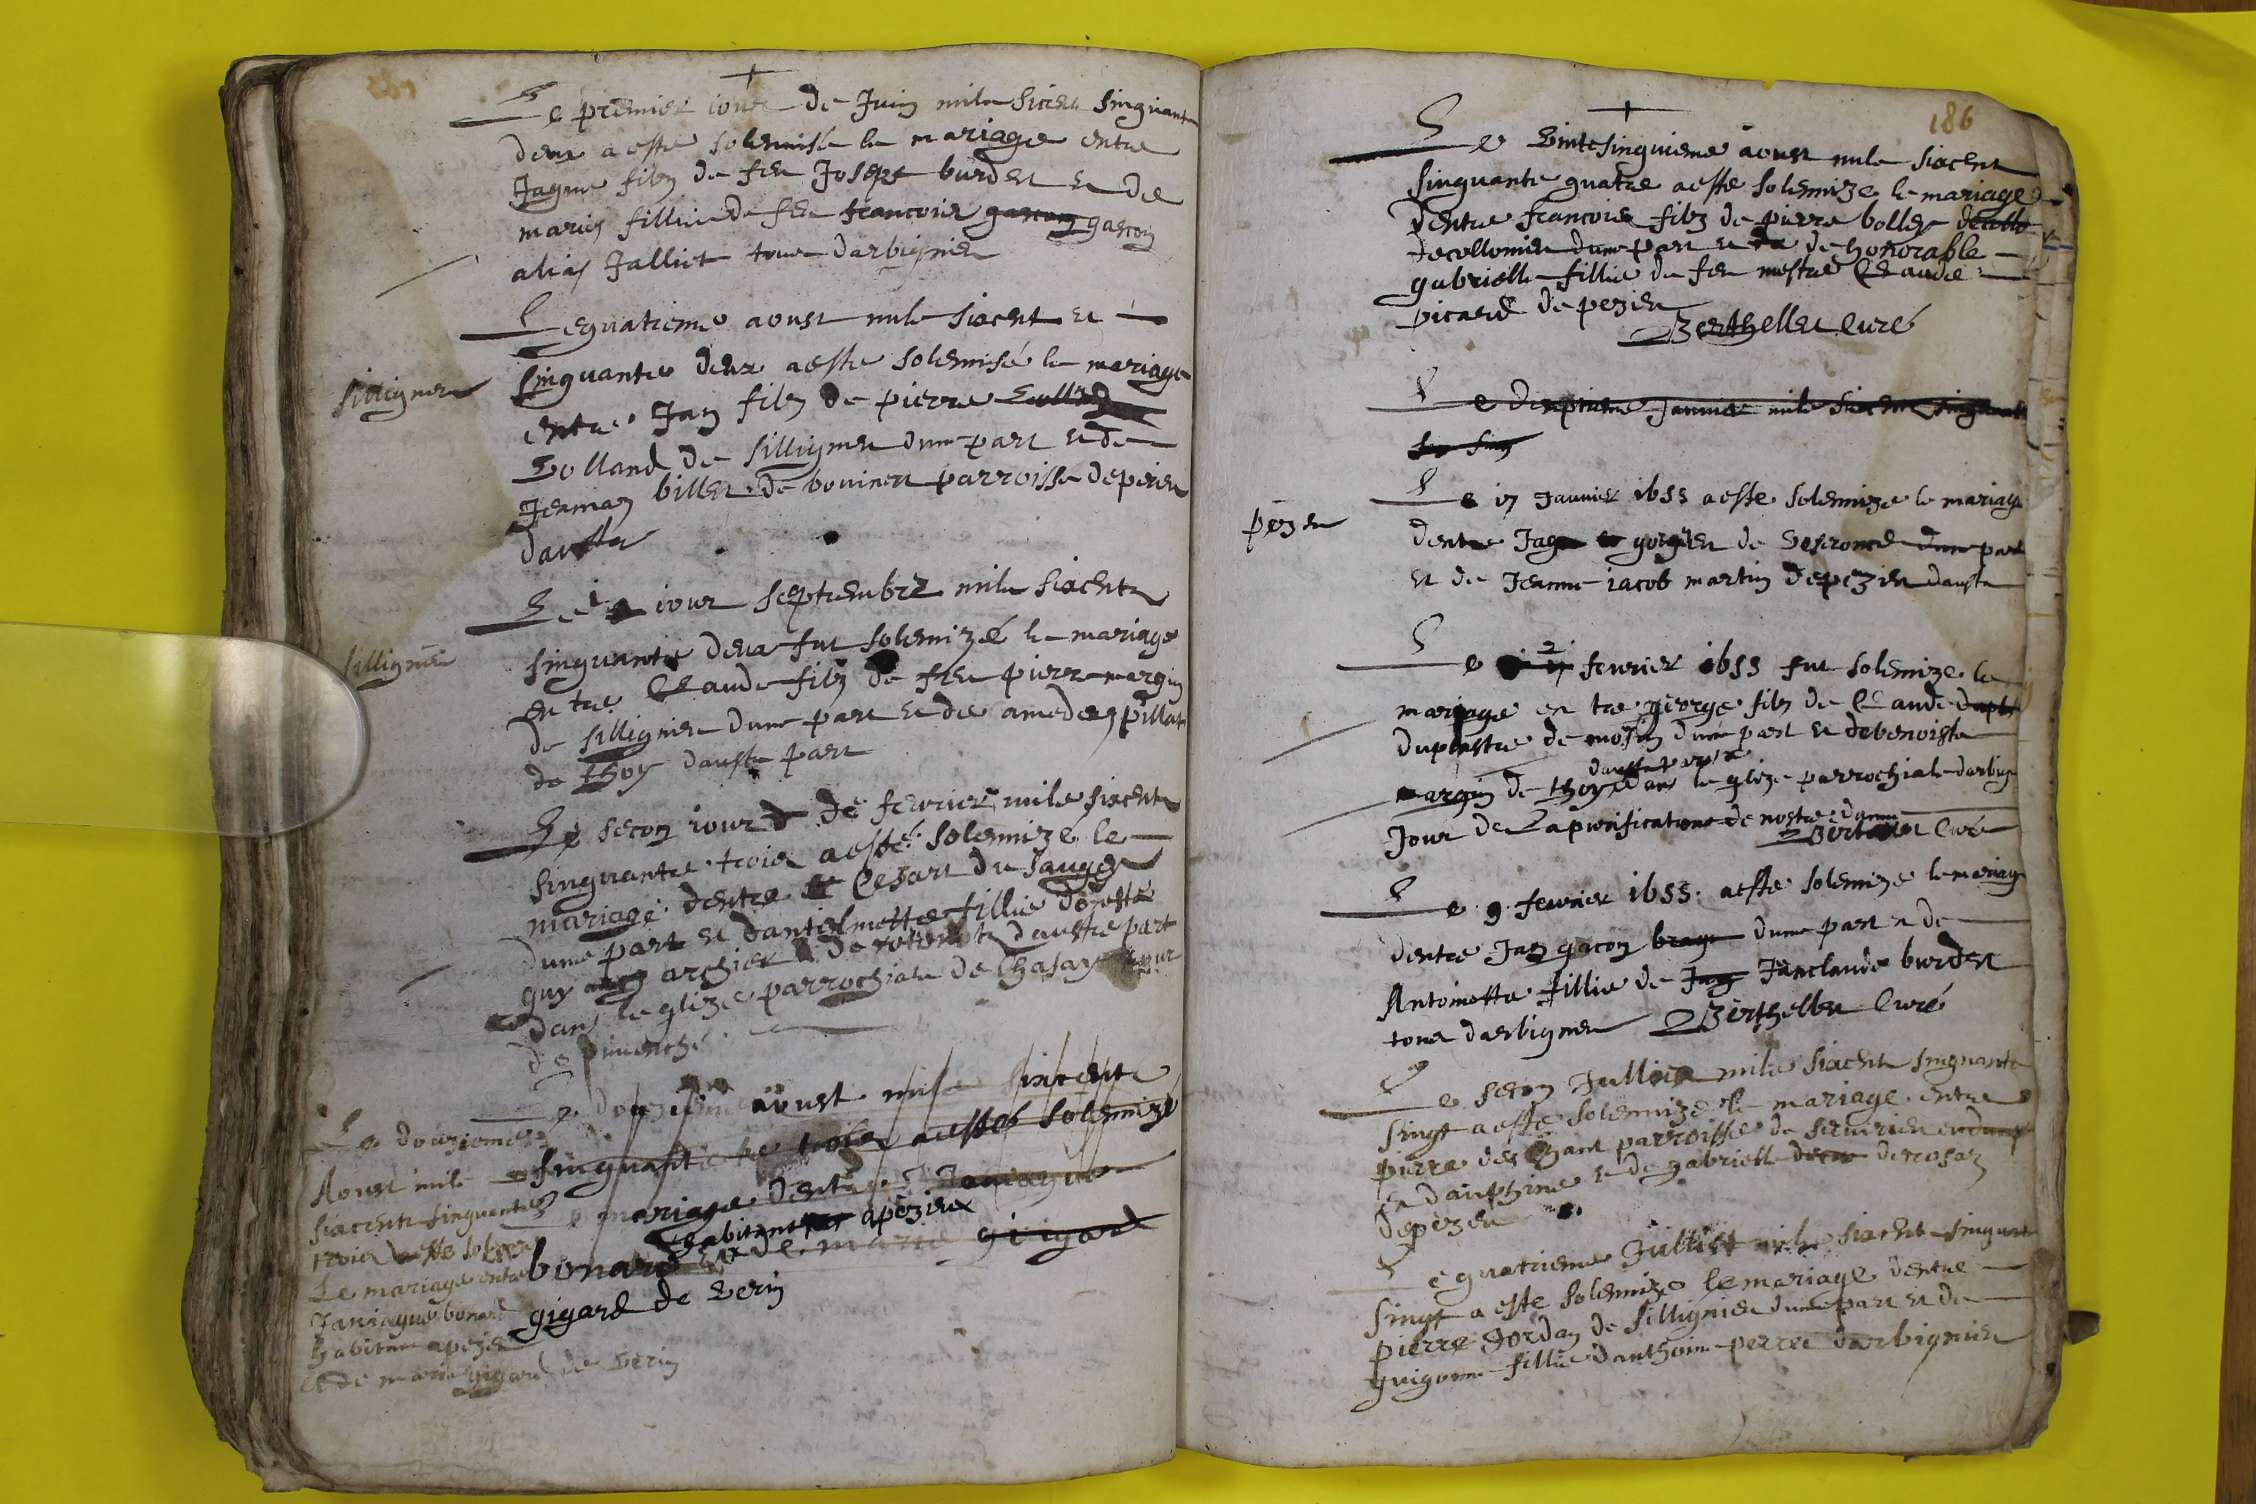 Le premier iour de Juin mile sixcent singuante
deux a este solemnisé le mariage entre
Jayme filz de feu Joseph burdet et de
marie fillie de feu francois gascon gascon
alias Jalliet tous darbignieu
Le quatrieme aoust mile sixcent et
singuante deux a este solemnisé le mariage
sillignieu
entre Jan filz de pierre
Volland de sillignieu dune part et de
Jenman billet de bovinen parroisse depezieu
dautre
Le iour septembre mile sixcent
singuante deux fut solemnizé le mariage
sillignieu
entre Claude filz de feu pierre margin
de sillignieu dune part et de amedey pillat
de thoy dautre part
Le secon iour de fevrier mile sixcent
singuante trois a esté solemnize le
mariage dentre Cesart du sauge
dune part et danielmette fillie doneste
guy archier de dautre part
dans leglize parrochiale de Chasay iour
de dimenche
Le douzieme aoust mile sixcent
singuante trois a esté solemnizé
le mariage dentre Janiague
habitant apezieu
bonard et de marie gigard
gigard de Verin
Le douziome
Aoust mile
siacent singuante
trois a este solem
Le mariage entre
Janiague bonard
habitan apezieu
et de marie gigard de Verin
186
Le vintesinguieme aoust mile sixcent
singuante quatre a este solemnize le mariage
dentre francois filz de pierre bolley decollo
decollomieu dune part et de de honorable
gabrielle fillie de feu mestre Claude
picard de pezieu
Berthellet Curé
Le dixseptieme Janvier mile sixcent singuante
et sing
Le 17 Janvier 1655 a este solemnize le mariage
pezieu
dentre Jage gorgieu de veseronce dune part
et de Jeanne iacob martin depezieu dautre
Le 2 fevrier 1655 fut solemnize le
mariage entre george filz de Claude dupla
duplastre de dune part et debenoiste
dautre part
margin de thoy dans leglize parrochiale darbignieu
Jour de Lapurification de nostre dame
Berthellet Curé
Le 9 fevrier 1655 a este solemnize le mariage
dentre Jan gacon brage dune part et de
Antoinette fillie de Jan Janclaude burdet
tous darbignieu Berthellet Curé
Le secon Jullie mile sixcent singuante
singt a este solemnize le mariage entre
pierre deschant parroisse de
en dauphine et de gabrielle derosaz
depezieu
Le quatrieme Julliet mile sixcent singuante
singt a este solemnize le mariage dentre
pierre Jordan de sillignieu dune part et de
guigonne fillie danthoine perret darbignieu